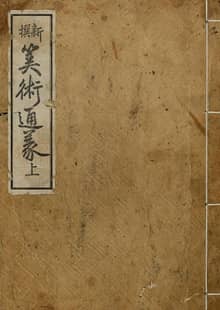 新撰
美術通義
上